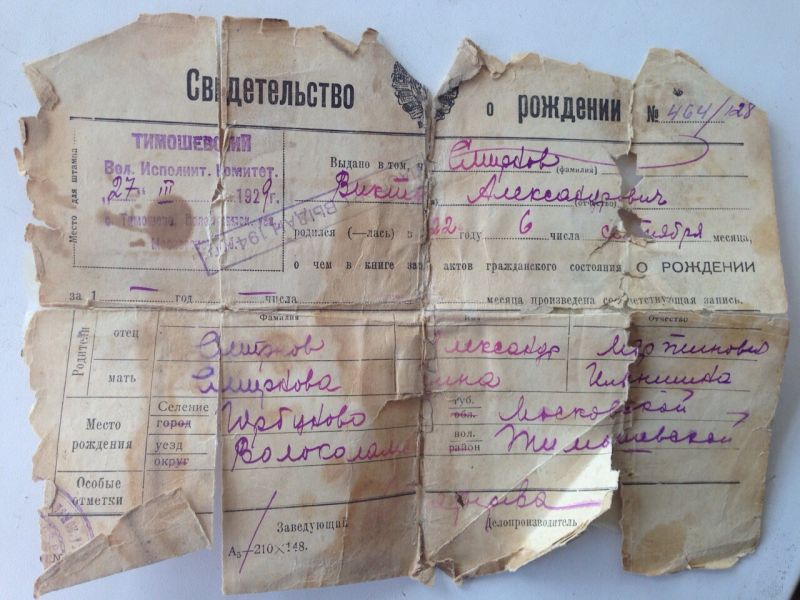 Свидетельство о рождении № 464/128
Место для штампа
ТИМОШЕВСКИЙ
Вол. Исполнит. Комитет.
"27" III 1929 г.
с. Тимошево,
Выдано в том, ч Смирнов
(фамилия)
Виктор Александрович
(отчество)
родился (—лась) в 22 году 6 числа сентября месяца,
о чем в книге зап актов гражданского состояния О РОЖДЕНИИ
за 1 — год — числа месяца произведена соответствующая запись.
ВЫДАН 194
Фамилия Имя Отчество
Родители
отец Смирнов Александр Мартинович
мать Смирнова ина
Место рождения
Селение город Горбуково губ. обл. Московской
уезд округ Волоколам вол. район Тимошевской
Особые отметки
Заведующий Делопроизводитель
А₅—210×148.